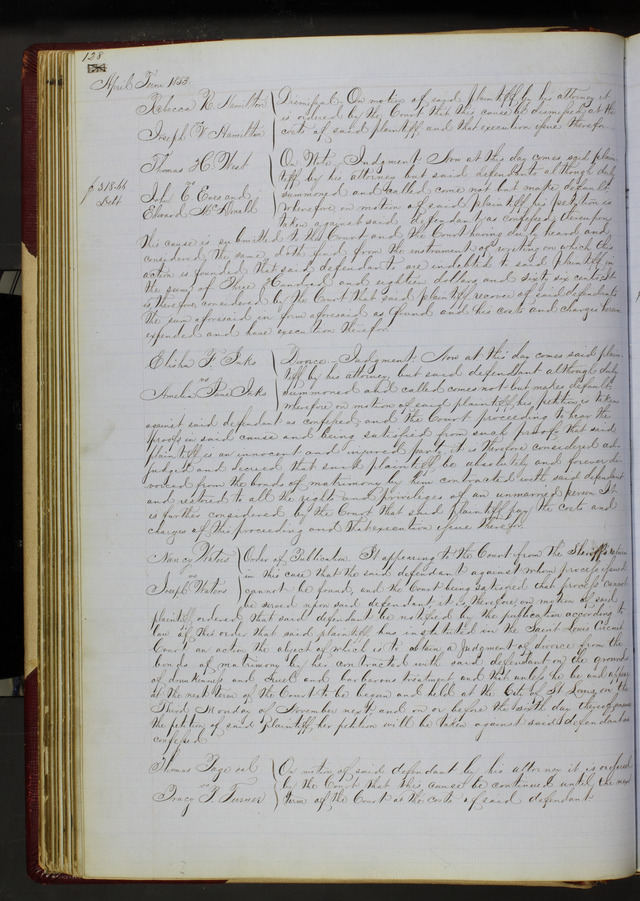 128
April Tm 1853.
Rebecca R. Hamilton
vs
Joseph V Hamilton
Dismissal. On motion of said plaintiff by his attorney it
is ordered by the Court that this cause be dismissed at the
costs of said plaintiff and that execution issue therefor
$318.66
Debt
Thomas H. West
vs
John T and
Edward McDonald
On Note, Judgment. Now at this day comes said plain-
tiff by his attorney but said defendants although duly
summoned and called come not but make default
wherefore on motion of said plaintiff his petition is
taken against said defendants as confessed, whereupon
this cause is submitted to the Court, and the Court having duly heard and
considered the same doth find from the instrument of writing on which this
action is founded that said defendants are indebted to said plaintiff in
the sum of Three Hundred and eighteen dollars and sixty six cents. It
is therefore considered by the Court that said plaintiff recover of said defendants
the sum aforesaid in form aforesaid as found and his costs and charges herein
expended and have execution therefor
Elisha F. Inks
vs
Amelia Jane Inks
Divorce - Judgment. Now at this day comes said plain-
tiff by his attorney, but said defendant although duly
summoned and called comes not but makes default
wherefore on motion of said plaintiff, his petition is taken
against said defendant as confessed, and the Court proceeding to hear the
proofs in said cause and being satisfied from such proofs that said
plaintiff is an innocent and injured party it is therefore considered ad-
judged and decreed that such plaintiff be absolutely and forever di-
vorced from the bonds of matrimony by him contracted with said defendant
and restored to all the rights and privileges of an unmarried person It
is further considered by the Court that said plaintiff pay the costs and
charges of this proceeding and that execution issue therefor
Nancy Waters
vs
Joseph Waters
Order of Publication. It appearing to the Court from the Sheriff's return
in this case that the said defendant against whom process issued
cannot be found, and the Court being satisfied that process cannot
be served upon said defendant, it is therefore, on motion of said
plaintiff, ordered that said defendant be notified by the publication according to
law of this order that said plaintiff has instituted in the Saint Louis Circuit
Court an action the object of which is to obtain a judgment of divorce from the
bonds of matrimony by her contracted with said defendant on the grounds
of drunkenness and cruel and barbarous treatment and that unless he be and appear
at the next term of the Court to be begun and held at the City of St Louis, on the
Third Monday of November next and on or before the sixth day thereof answer
the petition of said plaintiff, her petition will be taken against said defendant as
confessed
Thomas Page
vs
Tracy P. Turner
On motion of said defendant by his attorney it is ordered
by the Court that this cause be continued until the next
term of the Court at the costs of said defendant